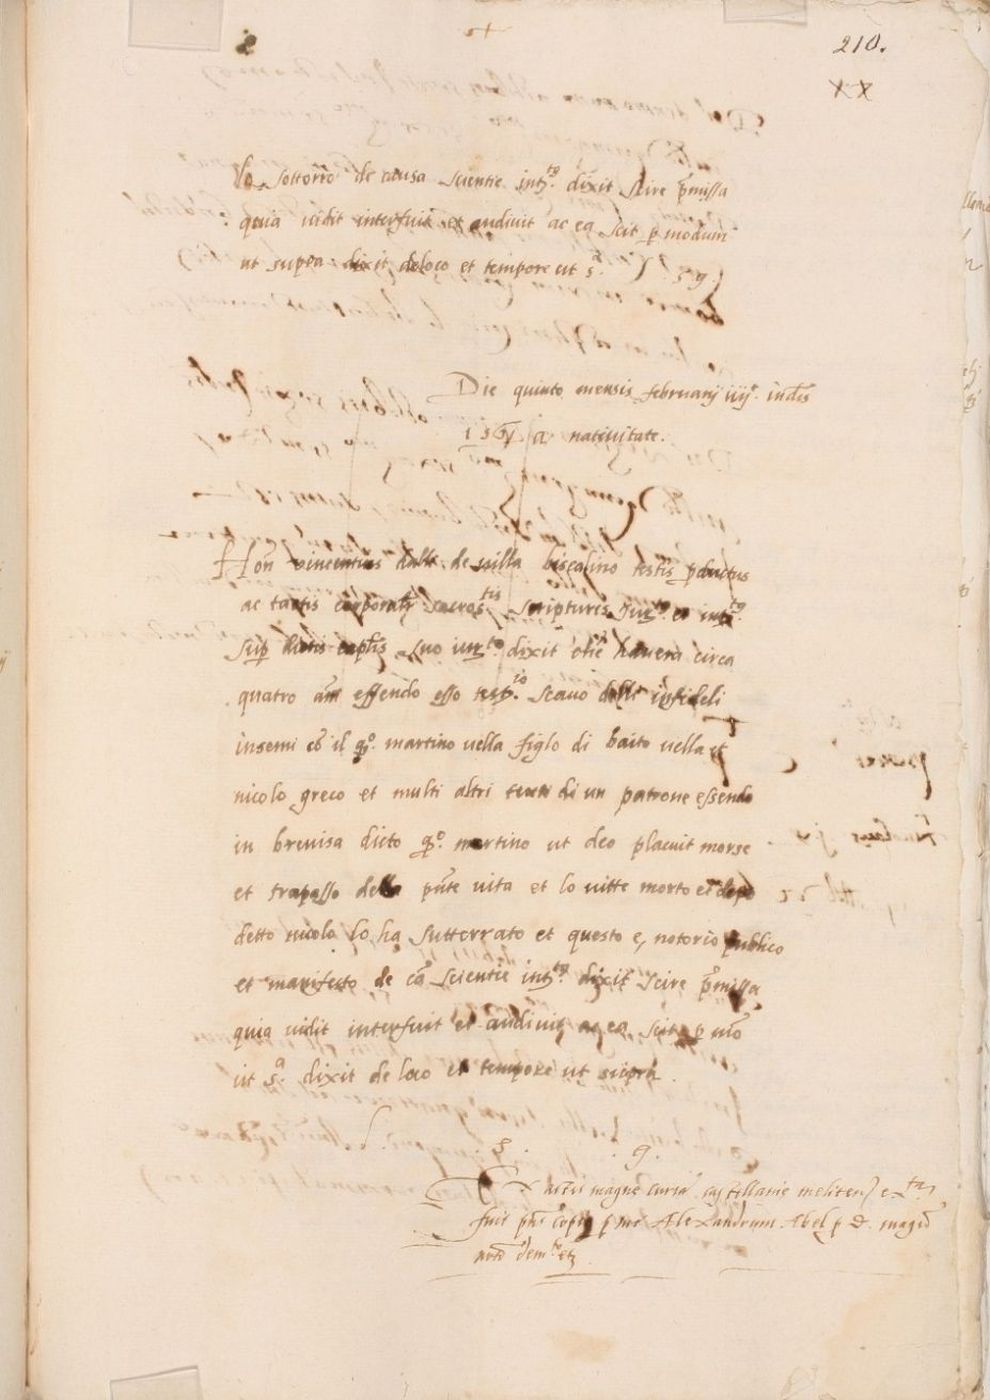 210.
XX
lo sottorro de causa scientie int.to dixit scire p̃missa
quia vidit interfuit et audivit ac ea scit p modum
ut supra dixit de loco et tempore ut s.a
Die quinto mensis februarij iiij.e indis
a nativitate.
Hon vincentius de villa biscalino testis pductus
ac tactis corporalr sacros.tis scripturis Jur.to et int.to
sup dictis caplis suo iur.to dixit che havera circa
quatro añi essendo esso test.io scavo delli infidelj
insemi cõ il qº. martino vella figlo di baito vella et
nicolo greco et multi altri tutti di un patrone essendo
in brevisa dicto qº. martino ut deo placuit morse
et trapasso della pñte vita et lo vitte morto et dopo
detto nicolo lo ha sutterrato et questo e, notorio publico
et manifesto de cã scientie int.to dixit scire p̃missa
quia vidit interfuit et audivit ac ea scit p mõ
ut s.a dixit de loco et tempore ut supra.
Ex actis magne curie castellanie meliten ext.ta
fuit pñs copia p me Alexandrum Abel p d. magro
noto